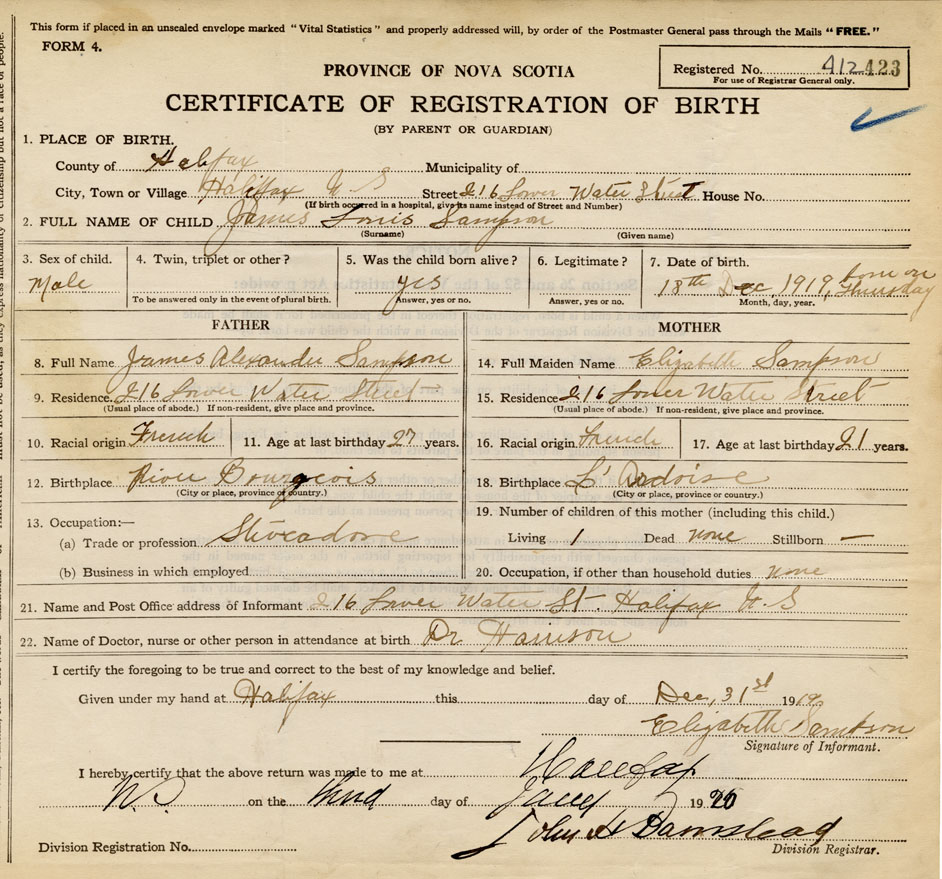 This form if placed in an unsealed envelope marked "Vital Statistics" and properly addressed will, by order of the Postmaster General pass through the Mails "FREE."
FORM 4.
Registered No. 412 423
For use of Registrar General only.
PROVINCE OF NOVA SCOTIA
CERTIFICATE OF REGISTRATION OF BIRTH
(BY PARENT OR GUARDIAN)
1. PLACE OF BIRTH.
County of Halifax Municipality of
City, Town or Village Halifax N S Street 216 Lower Water Street House No.
(If birth occurred in a hospital, give its name instead of Street and Number)
2. FULL NAME OF CHILD James Louis Sampson
(Surname) (Given name)
3. Sex of child. 4. Twin, triplet or other? 5. Was the child born alive? 6. Legitimate? 7. Date of birth.
Male yes 18th Dec 1919, born on Thursday
To be answered only in the event of plural birth. Answer, yes or no. Answer, yes or no. Month, day, year.
FATHER
8. Full Name James Alexander Sampson
9. Residence. 216 Lower Water Street
(Usual place of abode.) If non-resident, give place and province.
10. Racial origin French 11. Age at last birthday 27 years.
12. Birthplace River Bourgeois
(City or place, province or country.)
13. Occupation:—
(a) Trade or profession Stivcadore
(b) Business in which employed
MOTHER
14. Full Maiden Name Elizabeth Sampson
15. Residence 216 Lower Water Street
(Usual place of abode.) If non-resident, give place and province.
16. Racial origin French 17. Age at last birthday 21 years.
18. Birthplace L'Ardoise
(City or place, province or country.)
19. Number of children of this mother (including this child.)
Living 1 Dead none Stillborn —
20. Occupation, if other than household duties none
21. Name and Post Office address of Informant 216 Lower Water St. Halifax N. S
22. Name of Doctor, nurse or other person in attendance at birth Dr Harrison
I certify the foregoing to be true and correct to the best of my knowledge and belief.
Given under my hand at Halifax this day of Dec, 31st 1919
Elizabeth Sampson
Signature of Informant.
I hereby certify that the above return was made to me at Halifax
N.S on the third day of Jany 1920
John A Barnstead
Division Registration No. Division Registrar.